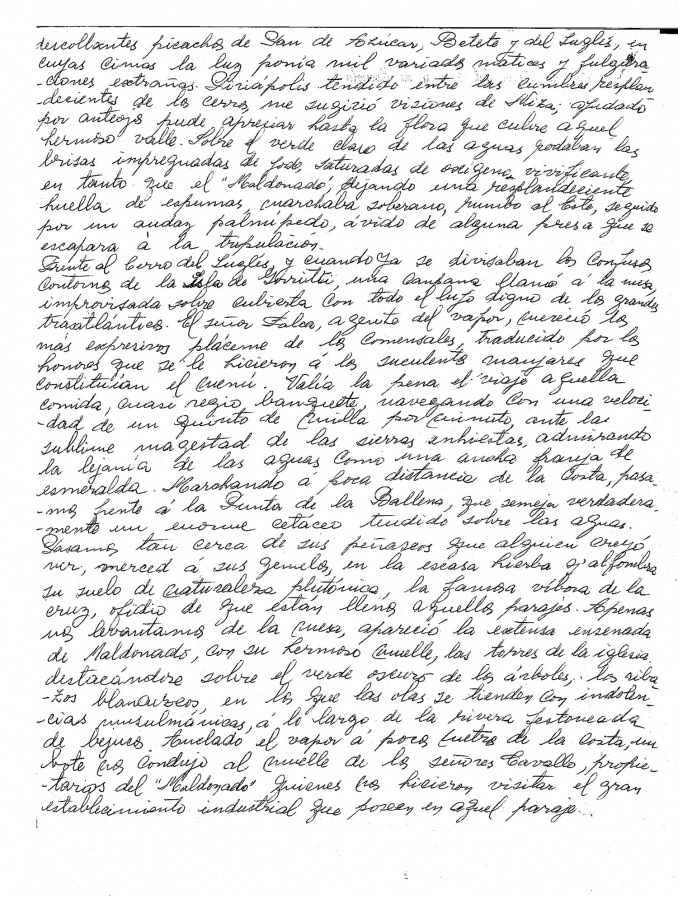 descollantes picachos de Pan de Azúcar, Betete y del Inglés, en
cuyas cimas la luz ponía mil variados matices y fulgura-
-ciones extrañas. Piriápolis tendido entre las cumbres resplan-
decientes de los cerros, me sugirió visiones de Niza; ayudado
por anteojos pude apreciar hasta la flora que cubre aquel
hermoso valle. Sobre el verde claro de las aguas rodaban las
brisas impregnadas de Iodo, saturadas de oxígeno vivificante,
en tanto que el "Maldonado", dejando una resplandeciente
huella de espumas, marchaba soberano, rumbo al Este, seguido
por un audaz palmípedo, ávido de alguna presa que se
escapara á la tripulación.
Frente al Cerro del Inglés, y cuando ya se divisaban los confusos
contornos de la Isla de Gorriti, una campana llamó á la mesa
improvisada sobre cubierta con todo el lujo digno de los grandes
trasatlánticos. El señor agente del vapor, mereció los
más expresivos pláceme de los comensales, traducido por los
honores que se le hicieron á los suculentos manjares que
constituían el menú. Valía la pena el viaje aquella
comida, cuasi regio banquete, navegando con una veloci-
-dad de un quinto de milla por minuto, ante la
sublime magestad de las sierras enhiestas, admirando
la lejanía de las aguas como una ancha franja de
esmeralda. Marchando á poca distancia de la costa, pasa-
-mos frente á la Punta de la Ballena, que semeja verdadera-
-mente un enorme cetáceo tendido sobre las aguas.
Pasamos tan cerca de sus peñascos que alguien creyó
ver, merced á sus gemelos, en la escasa hierba q' alfombra
su suelo de naturaleza plutónica, la famosa víbora de la
cruz, ofidio de que están llenos aquellos parajes. Apenas
nos levantamos de la mesa, apareció la extensa ensenada
de Maldonado, con su hermoso muelle, las torres de la iglesia
destacándose sobre el verde oscuro de los árboles, los riba-
-zos blancuzcos, en los que las olas se tienden con indolen-
-cias musulmánicas, á lo largo de la rivera festoneada
de bejuco. Anclado el vapor á pocos metros de la costa, un
bote nos condujo al muelle de los señores Cavallo, propie-
-tarios del "Maldonado" quienes nos hicieron visitar el gran
establecimiento industrial que poseen en aquel paraje.